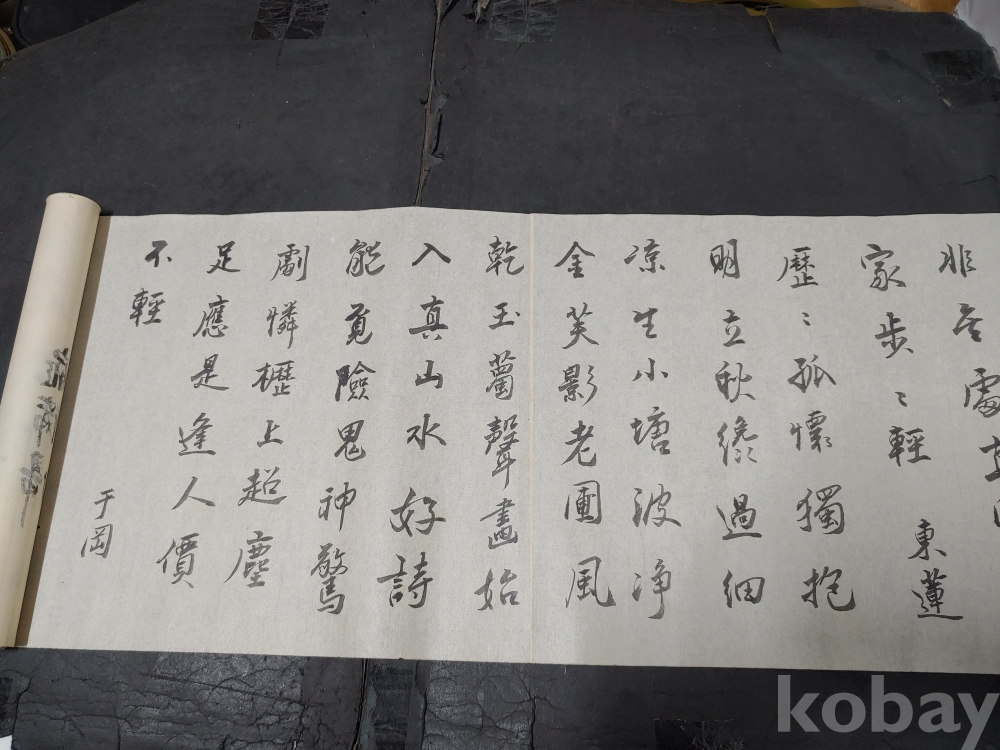 非吾處
家步〻輕
東蓮
歷〻孤懷獨抱
明立秋纔過細
凉生小塘波淨
金芙影老圃風
乾玉蔔聲畫始
入真山水好詩
能覓險鬼神驚
劇憐櫪上超塵
足應是逢人價
不輕
于岡
kobay